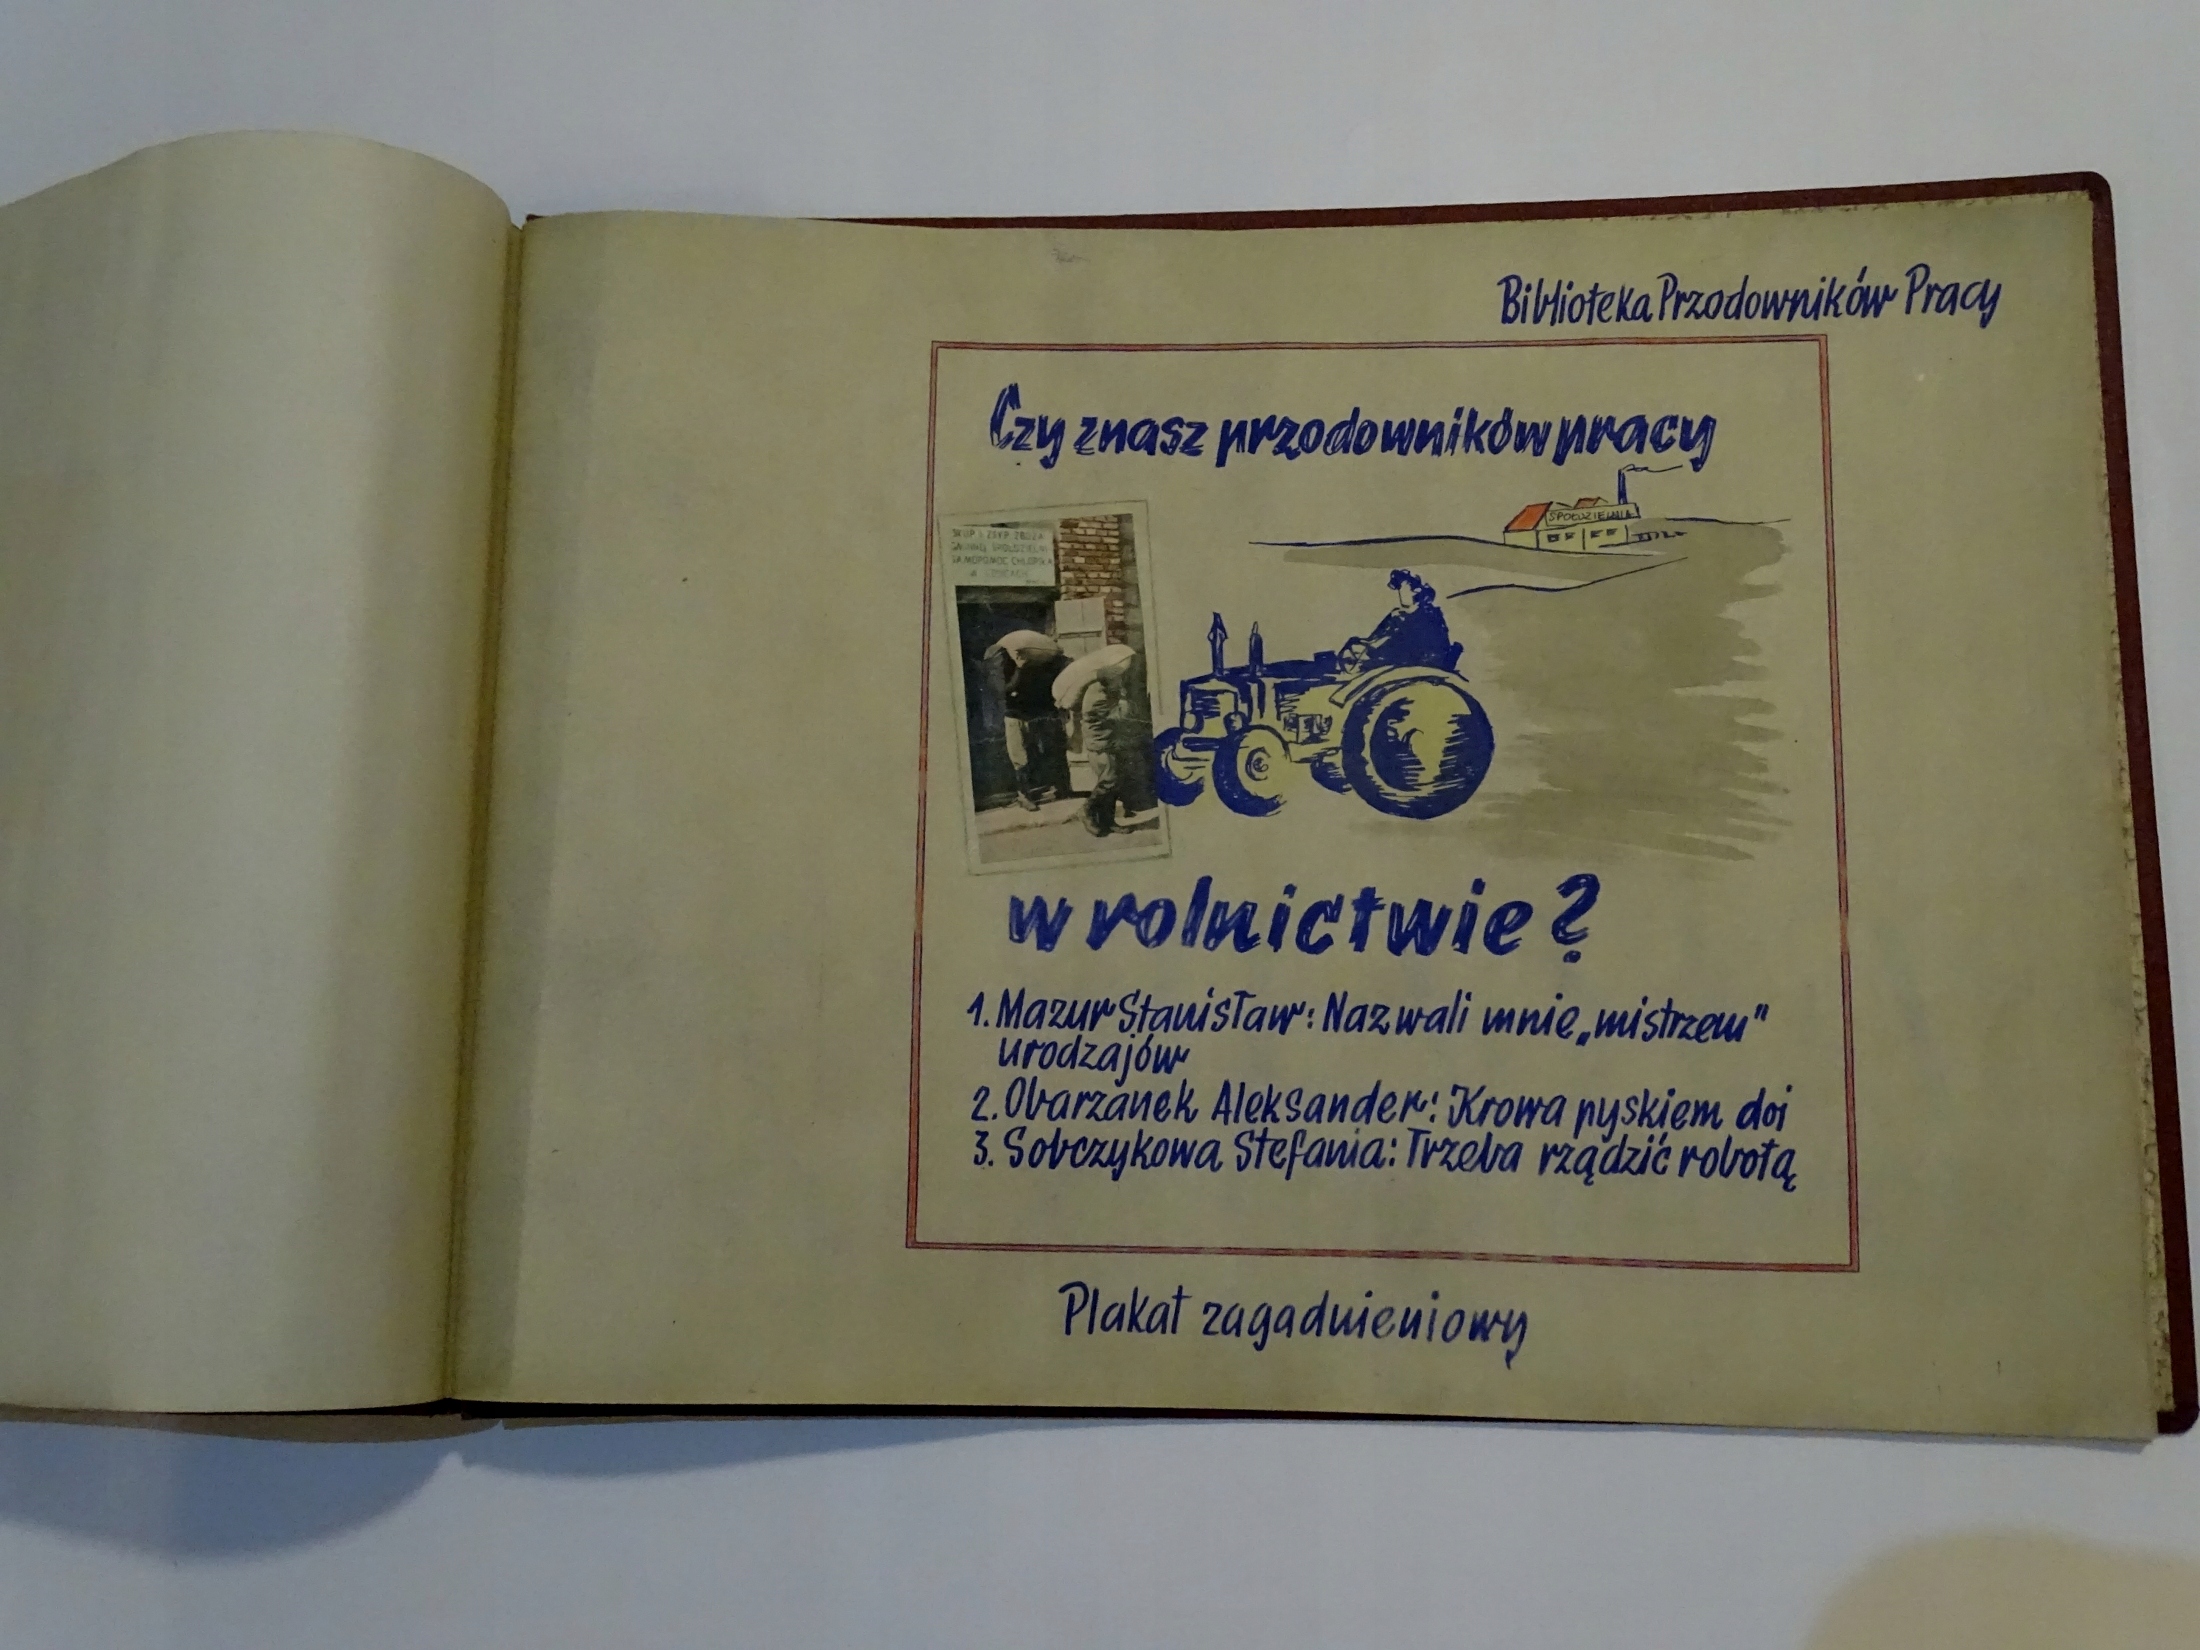 Biblioteka Przodowników Pracy
Czy znasz przodowników pracy
SPÓŁDZIELNIA
SKUP I ZSYP ZBOŻA
GMINNEJ SPÓŁDZIELNI
SAMOPOMOC CHŁOPSKA
w rolnictwie?
1. Mazur Stanisław: Nazwali mnie „mistrzem”
urodzajów
2. Obarzanek Aleksander: Krowa pyskiem doi
3. Sobczykowa Stefania: Trzeba rządzić robotą
Plakat zagadnieniowy